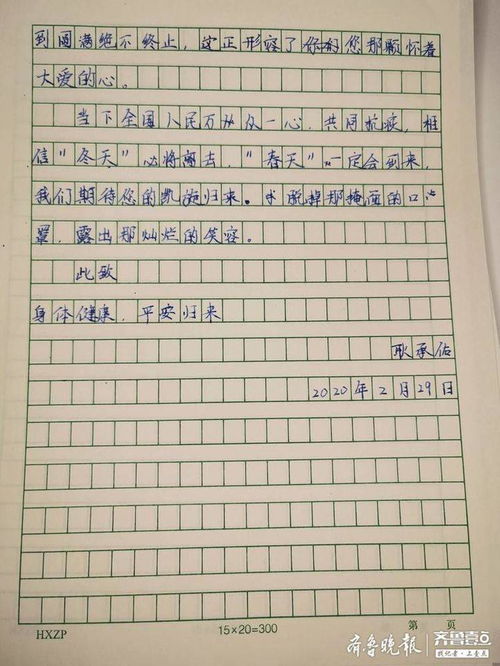 到圆满绝不终止，这正形容了你的您那颗怀着
大爱的心。
当下全国人民万众一心，共同抗疫，相
信"冬天"必将离去，"春天"一定会到来，
我们期待您的凯旋归来。脱掉那掩面的口
罩，露出那灿烂的笑容。
此致
身体健康，平安归来
耿承佑
2020年2月29日
HXZP
15×20=300
第 页
齐鲁晚报
齐鲁壹点